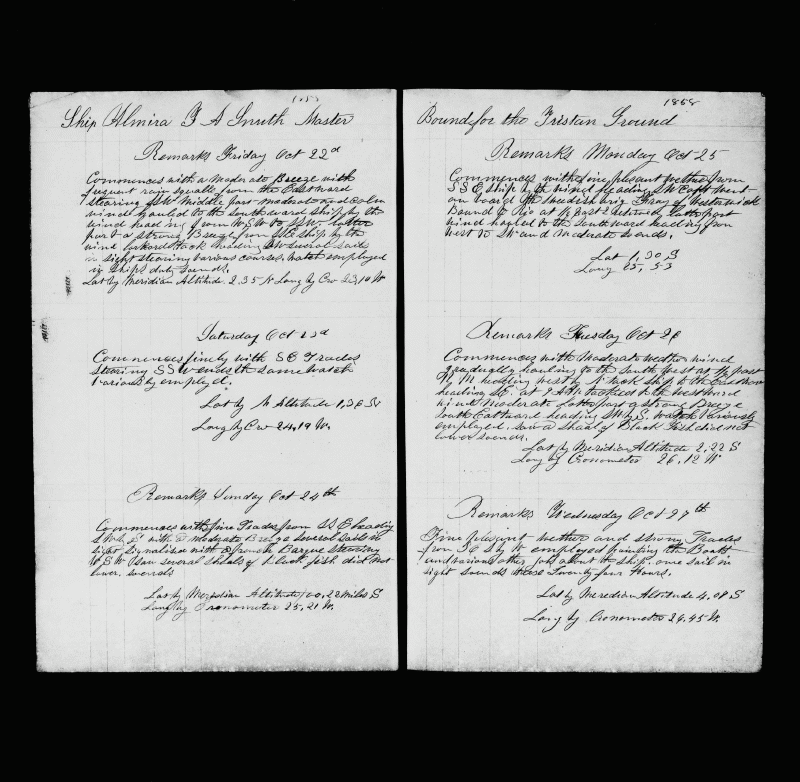 Ship Almira F A Smith Master
Remarks Friday Oct 22d
Commences with a moderate Breeze with
frequent rain squalls from the Eastward
stearing SSW Middle part moderate and Calm
wind hauled to the southward ship by the
wind heading from WSW to SSW latter
part a strong Breeze from SSE ship by the
wind larboard tack heading SW several sails
in sight stearing various courses, watch employed
in ships duty soends.
Lat by Meridian Altitude 2.35 N Long by Cro 23,10 W
Saturday Oct 23d
Commences finely with SE Trades
stearing SSW ends the same watch
variously employed.
Lat by M Altitude 1,36 N
Long by Cro 24,19 W.
Remarks Sunday Oct 24th
Commences with fine Trades from SSE heading
SW by S with a moderate Breeze several sails in
sight signalised with a french Barque stearing
WSW saw several shoals of black fish did not
lower. soends
Lat by Meridian Altitude 00,22 miles S
Long by Cronometer 25,21 W.
1858
Bound for the Tristan Ground
Remarks Monday Oct 25
Commences with fine pleasant wether from
SSE, ship by the wind heading SW Capt went
on board the Swedish brig of Westerwick
Bound to Rio at past returned latter part
wind hauled to the southward heading from
West to SW and moderate soends.
Lat 1,30 S
Long 25,53
Remarks Tuesday Oct 26
Commences with Moderate wether wind
gradually hauling to the south west at past
M heading west by N tack ship to the Eastward
heading SE. at 7 AM tacked to the westward
wind moderate latter part a strong Breeze
South Eastward heading SW by S. watch Variously
employed. saw a shoal of Black Fish did not
lower soends.
Lat by Meridian Altitude 2,22 S
Long by Cronometer 26,12 W
Remarks Wednesday Oct 27th
Fine pleasant wether and strong Trades
from SE by employed painting the Boats
and various other jobs about the ship. one sail in
sight soends these Twenty four Hours.
Lat by Meridian Altitude 4,08 S
Long by Cronometer 26.45 W.